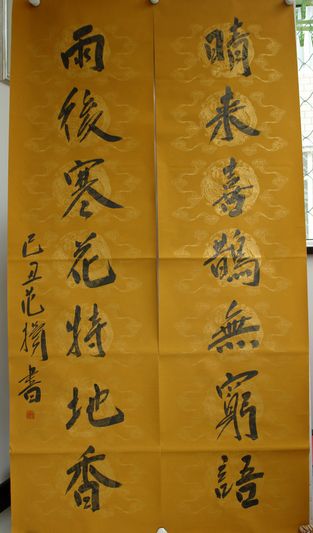 晴来喜鵲無窮語
雨後寒花特地香
己丑范撝書